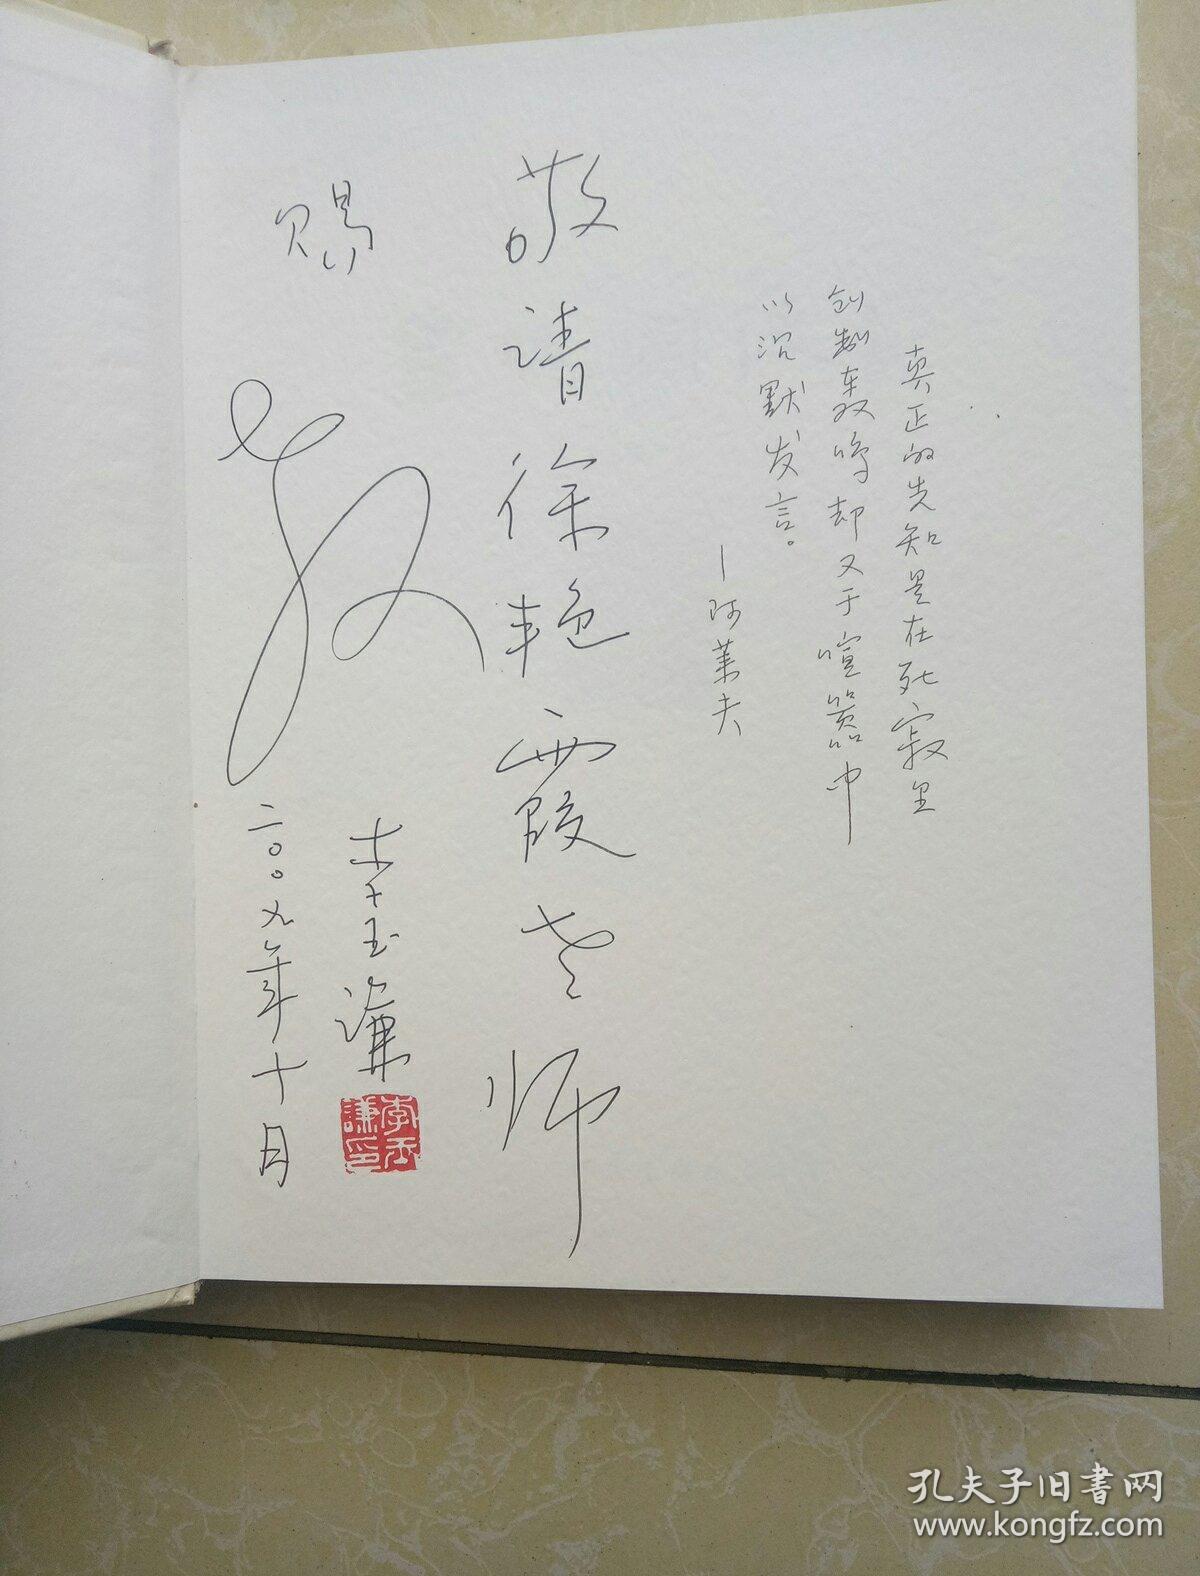 真正的先知是在死寂里
创制轰鸣却又于喧嚣中
以沉默发言。
—阿莱夫
敬请徐艳霞老师
赐
教
李玉谦
二〇〇九年十月
李玉謙印
孔夫子旧书网
www.kongfz.com